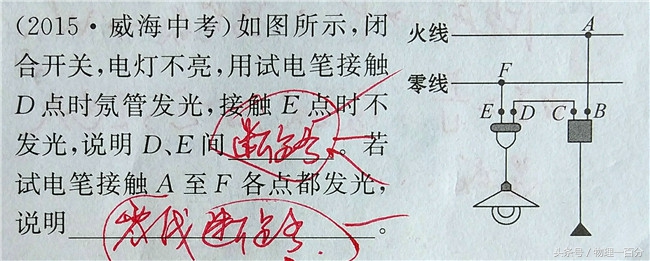 (2015·威海中考)如图所示,闭
合开关,电灯不亮,用试电笔接触
D点时氖管发光,接触E点时不
发光,说明D、E间断路。若
试电笔接触A至F各点都发光,
说明零线断路。
火线
A
零线
F
E D C B
头条号/物理一百分